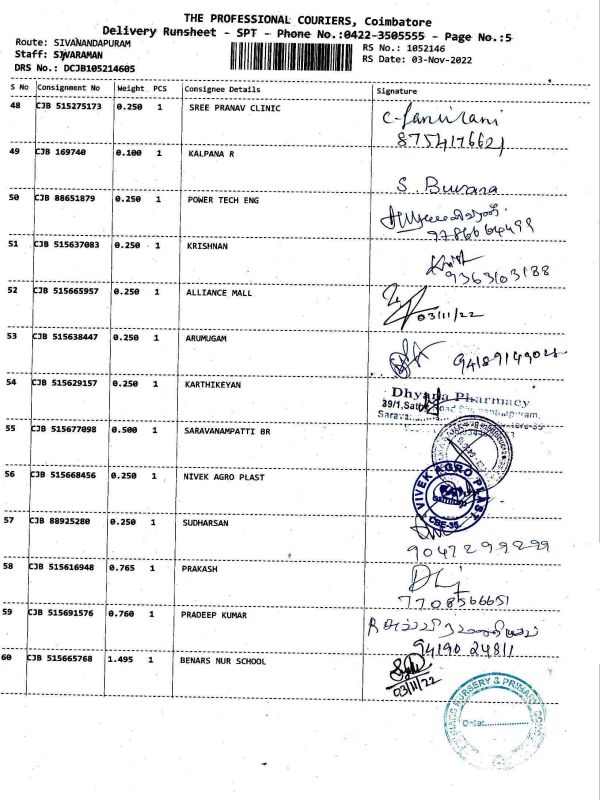 THE PROFESSIONAL COURIERS, Coimbatore
Delivery Runsheet - SPT - Phone No.:0422-3505555 - Page No.:5
Route: SIVANANDAPURAM
Staff: SIVARAMAN
RS No.: 1052146
DRS No.: DCJB105214605
RS Date: 03-Nov-2022
S No Consignment No Weight PCS Consignee Details Signature
48 CJB 515275173 0.250 1 SREE PRANAV CLINIC
8754176621
49 CJB 169740 0.100 1 KALPANA R
S.
50 CJB 88651879 0.250 1 POWER TECH ENG
9786664499
51 CJB 515637083 0.250 1 KRISHNAN
9363103188
52 CJB 515665957 0.250 1 ALLIANCE MALL
03/11/22
53 CJB 515638447 0.250 1 ARUMUGAM
54 CJB 515629157 0.250 1 KARTHIKEYAN
Dhyana Pharmacy
39/1,
55 CJB 515677098 0.500 1 SARAVANAMPATTI BR
56 CJB 515668456 0.250 1 NIVEK AGRO PLAST
VIVEK AGRO PLAST
CBE-35
57 CJB 88925280 0.250 1 SUDHARSAN
9047299299
58 CJB 515616948 0.765 1 PRAKASH
7708566651
59 CJB 515691576 0.760 1 PRADEEP KUMAR
94190 24811
60 CJB 515665768 1.495 1 BENARS NUR SCHOOL
03/11/22
NURSERY & PRIMARY
Date: